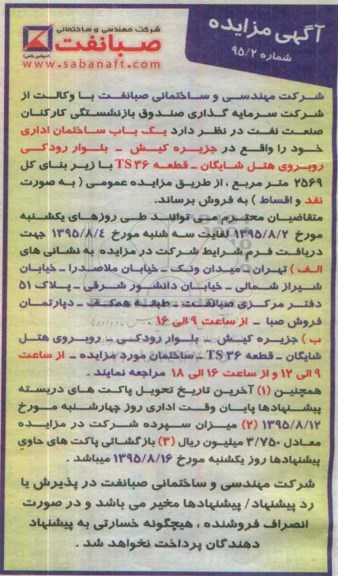 آگهی مزایده
شماره ۹۵/۲
شرکت مهندسی و ساختمانی
صبانفت
(سهامی خاص)
www.sabanaft.com
شرکت مهندسی و ساختمانی صبانفت با وکالت از
شرکت سرمایه گذاری صندوق بازنشستگی کارکنان
صنعت نفت در نظر دارد یک باب ساختمان اداری
خود را واقع در جزیره کیش ـ بلوار رودکی
روبروی هتل شایگان ـ قطعه TS ۳۶ با زیر بنای کل
۲۵۶۹ متر مربع ، از طریق مزایده عمومی ( به صورت
نقد و اقساط ) به فروش برساند.
متقاضیان محترم می توانند طی روزهای یکشنبه
مورخ ۱۳۹۵/۸/۲ لغایت سه شنبه مورخ ۱۳۹۵/۸/٤ جهت
دریافت فرم شرایط شرکت در مزایده به نشانی های
الف ) تهران ـ میدان ونک ـ خیابان ملاصدرا ـ خیابان
شیراز شمالی ـ خیابان دانشور شرقی ـ پلاک ۵۱
دفتر مرکزی صبانفت ـ طبقه همکف ـ دپارتمان
فروش صبا ـ از ساعت ۹ الی ۱۶ .
ب ) جزیره کیش ـ بلوار رودکی ـ روبروی هتل
شایگان ـ قطعه TS ۳۶ ـ ساختمان مورد مزایده ـ از ساعت
۹ الی ۱۲ و از ساعت ۱۶ الی ۱۸ مراجعه نمایند .
همچنین (۱) آخرین تاریخ تحویل پاکت های دربسته
پیشنهادها پایان وقت اداری روز چهارشنبه مورخ
۱۳۹۵/۸/۱۲ (۲) میزان سپرده شرکت در مزایده
معادل ۳/۷۵۰ میلیون ریال (۳) بازگشائی پاکت های حاوی
پیشنهادها روز یکشنبه مورخ ۱۳۹۵/۸/۱۶ میباشد .
شرکت مهندسی و ساختمانی صبانفت در پذیرش یا
رد پیشنهاد / پیشنهادها مخیر می باشد و در صورت
انصراف فروشنده ، هیچگونه خسارتی به پیشنهاد
دهندگان پرداخت نخواهد شد .